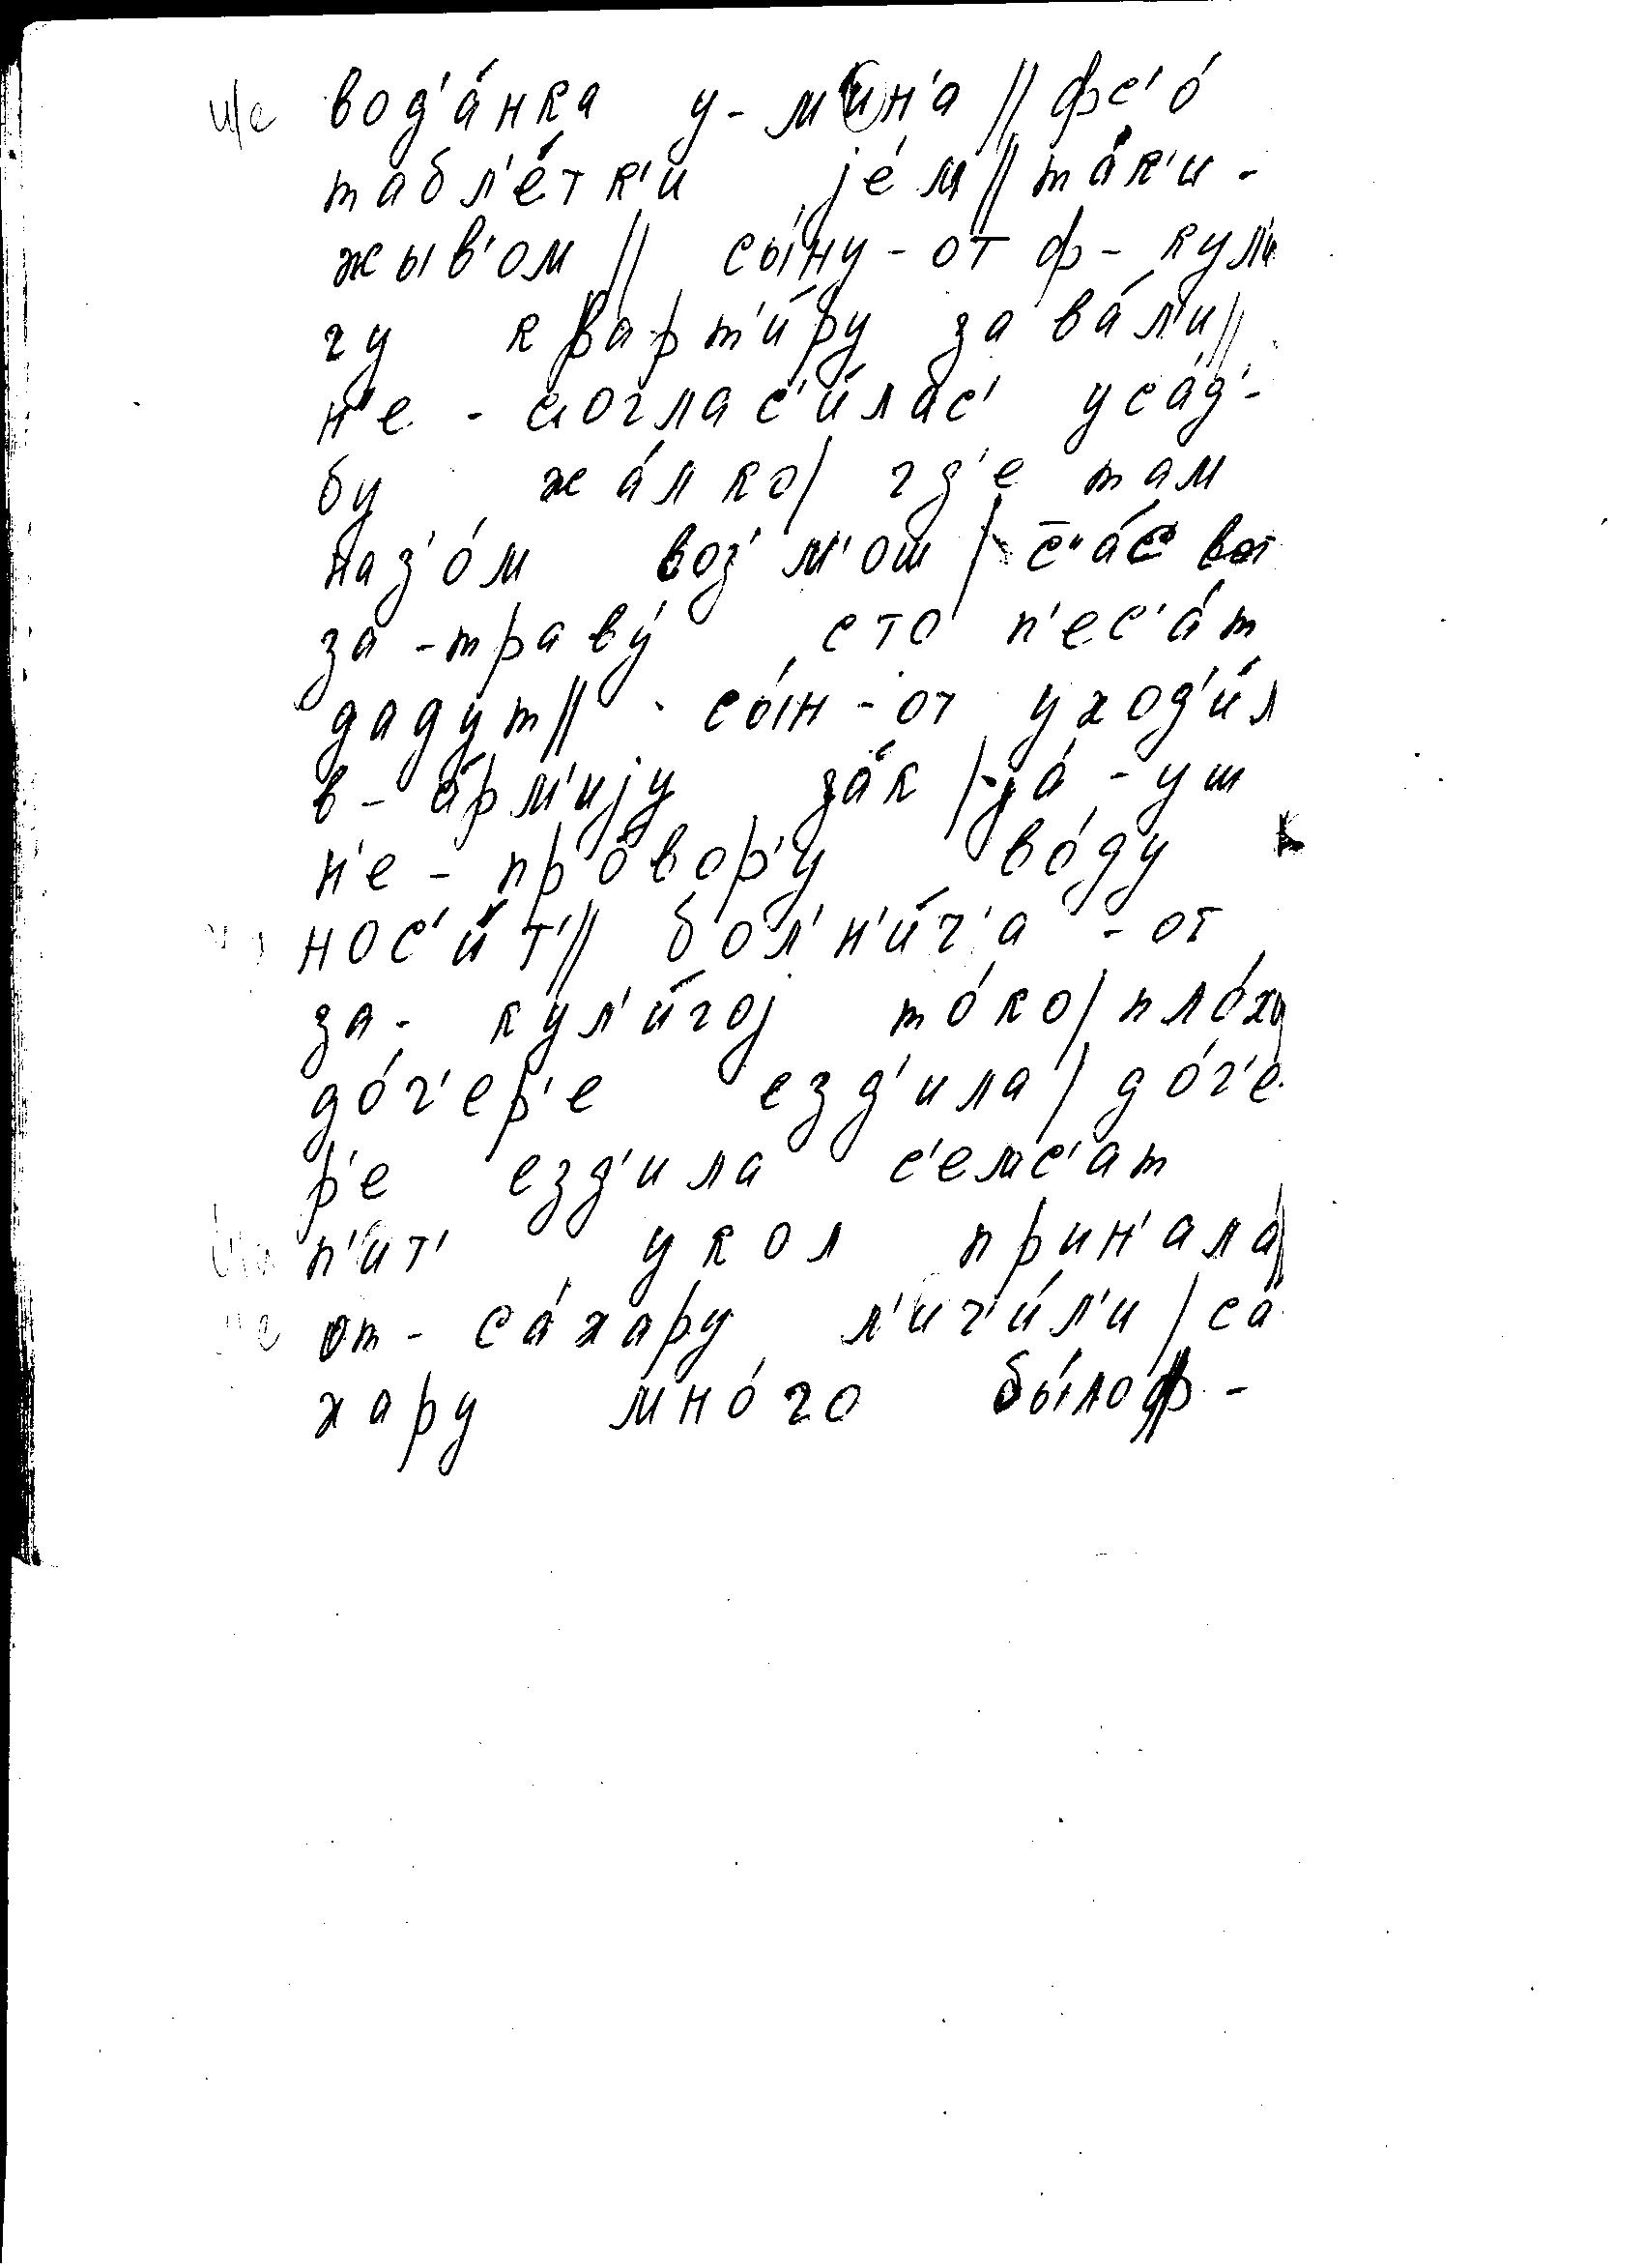 и/е вод'а́нка у-мин'а // фс'о́
табл'е́тк'и је́м // та́к'и-
жыв'ом // сы́ну-от ф-кул'и
гу кварт'и́ру завал'и́ //
н'е-согlас'и́лас' уса́д'-
бу жа́лко / гд'е там
наз'о́м воз'м'ош / с̄"а́с вот
за-траву́ сто п'ес'а́т
даду́т // сы́н-от уход'и́л
в-а́рм'ију за́к / ја́-уш
н'е-про́вор'у во́ду
нос'и́т' // бол'н'и́ч'а-от
за-кул'и́гој то́ко / пло́ху
до́ч'ер'е езд'ила / до́ч'е
р'е езд'ила с'емс'ат
п'ит' укол прин'ала́ //
от-са́хару л'ич'и́л'и / са́
хару мно́го бы́ло // ф-